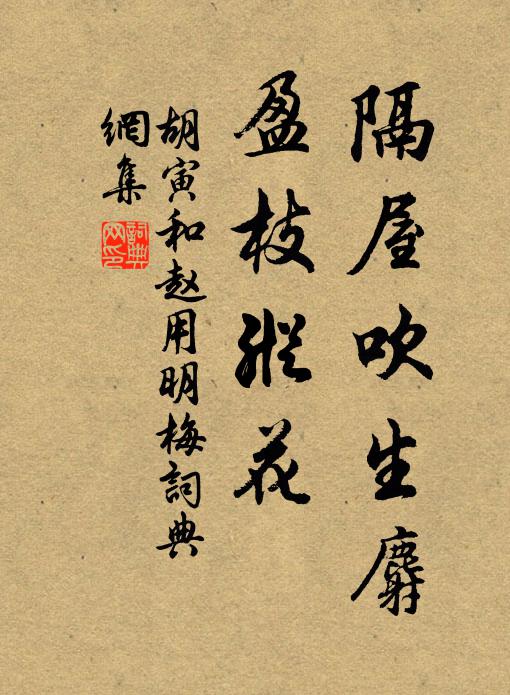 隔屋吹生麝
盈枝縱花
胡寅和赵用明梅詞典
網集
詞典
网印